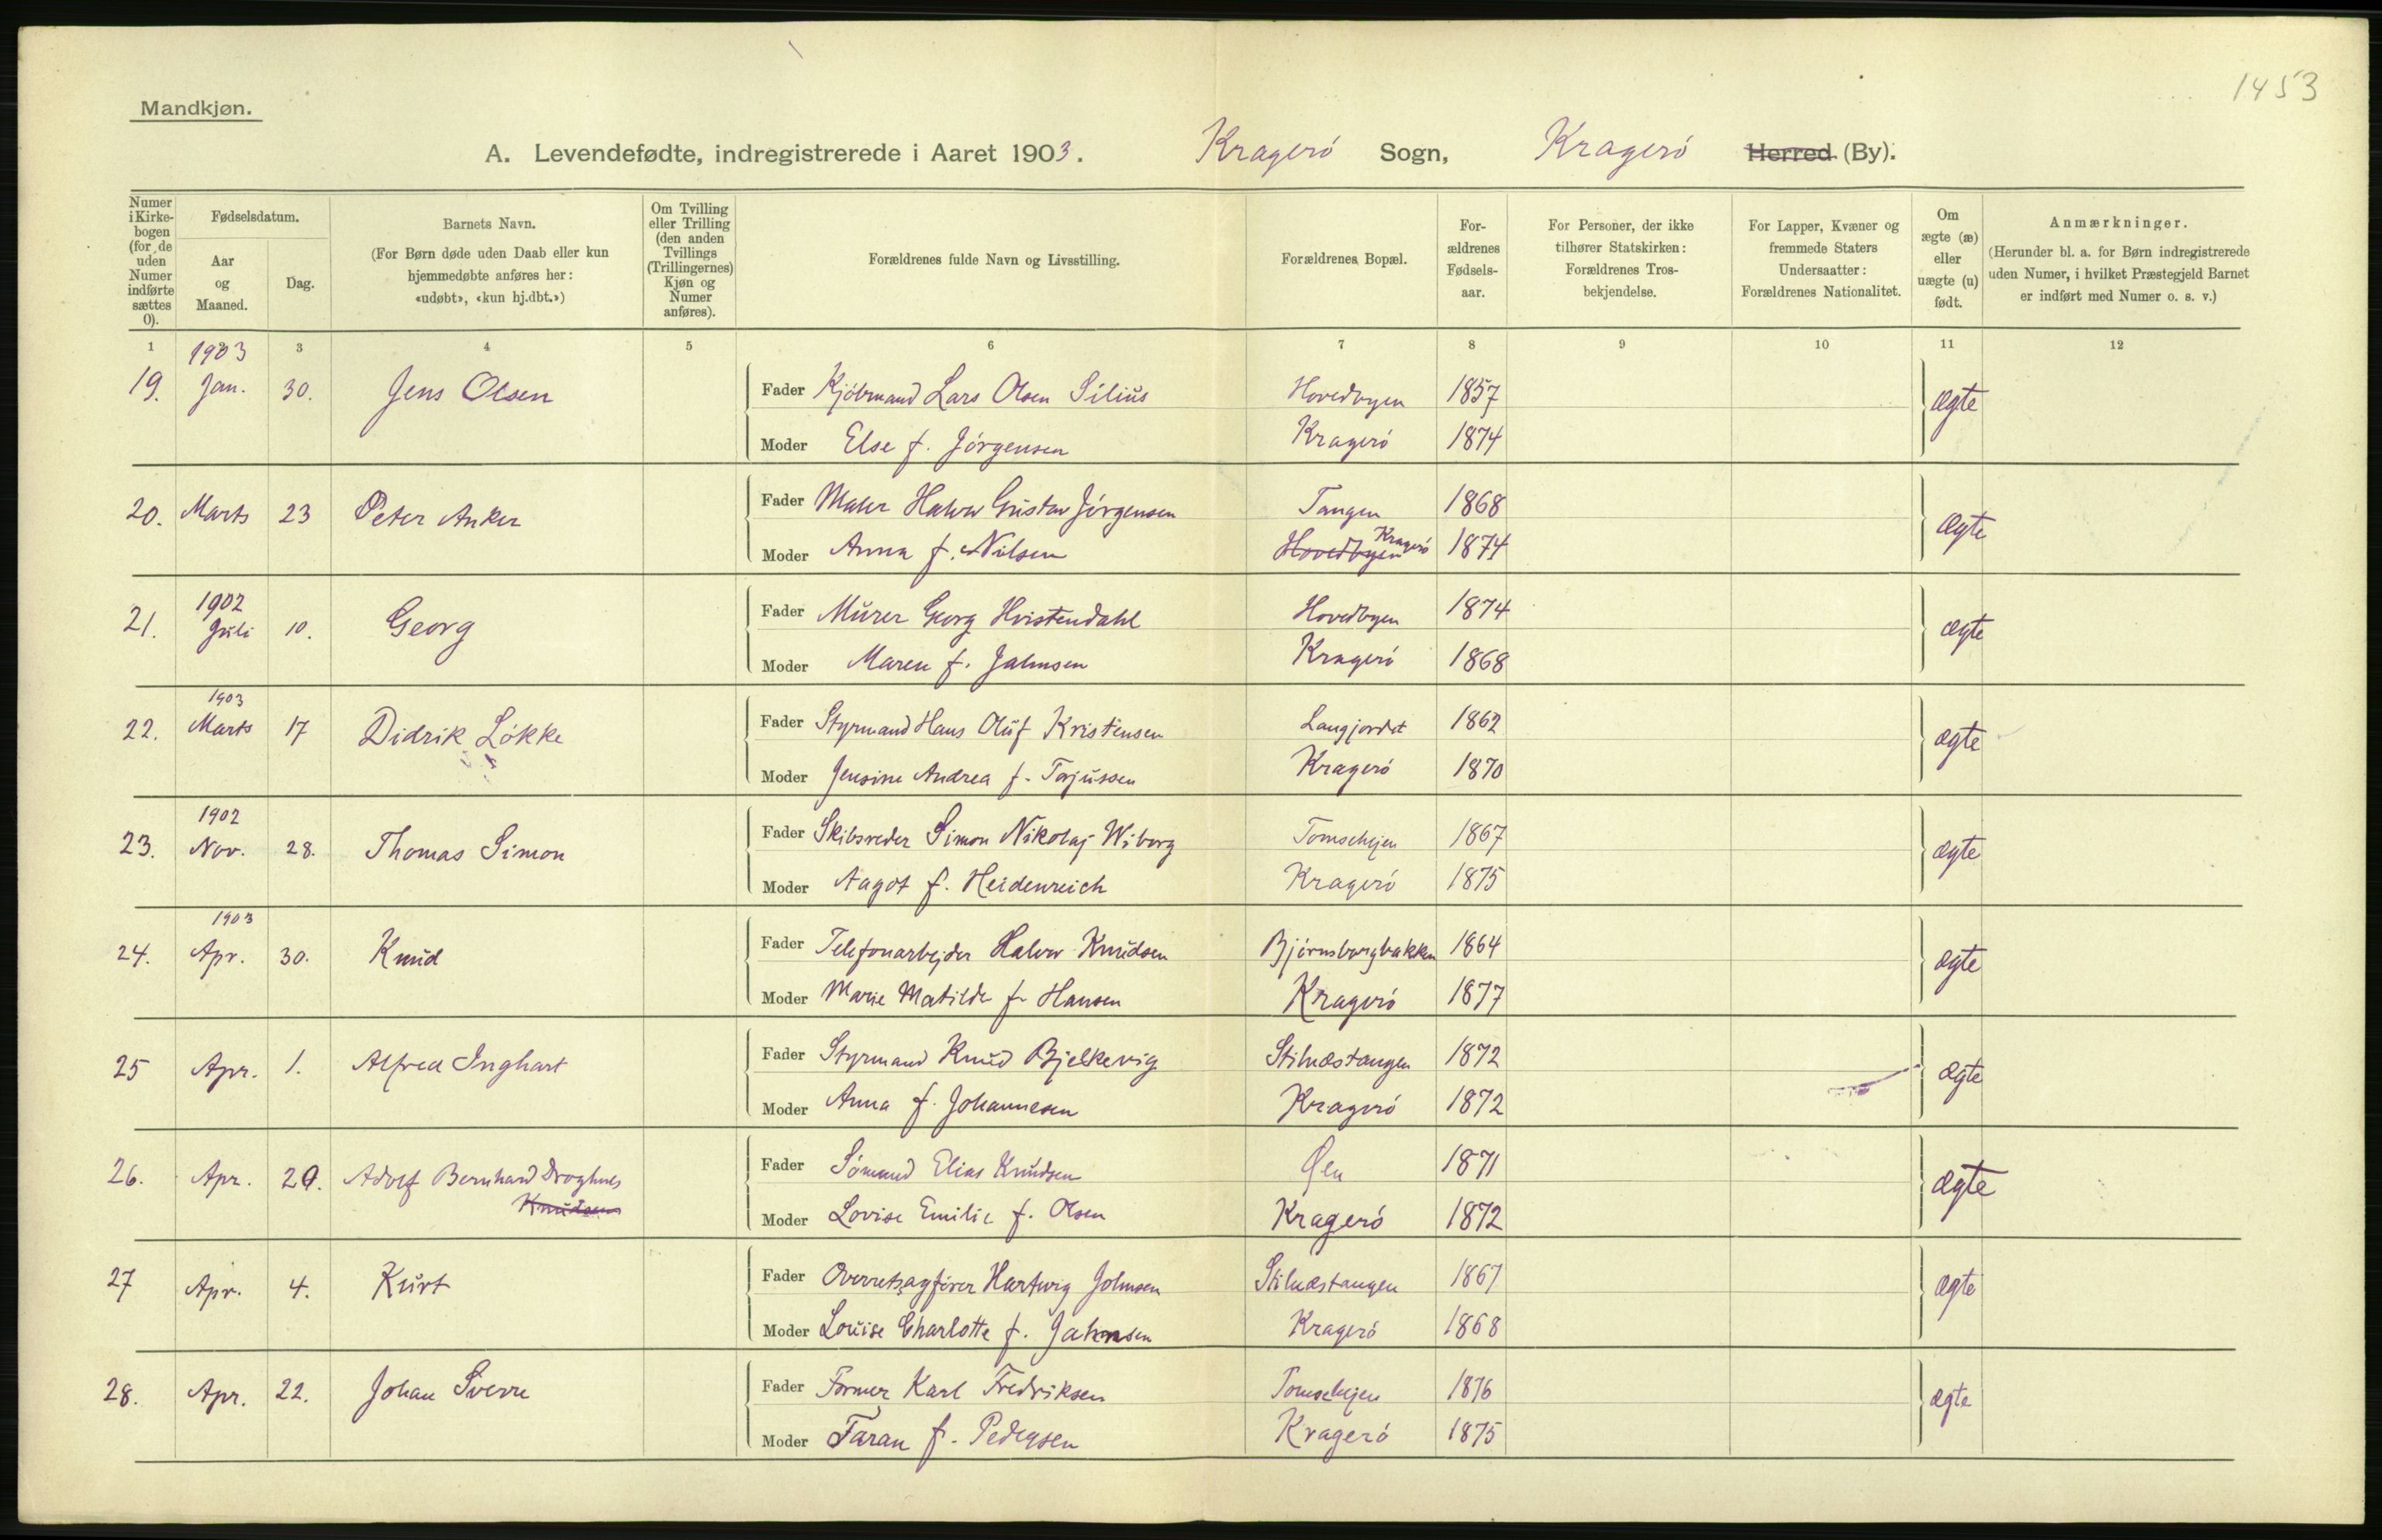 1453
Mandkjøn.
A. Levendefødte, indregistrerede i Aaret 1903. Kragerö Sogn, Kragerö Herred (By).
Numer i Kirkebogen (for de uden Numer indførte sættes 0).
Fødselsdatum.
Aar og Maaned.
Dag.
Barnets Navn.
(For Børn døde uden Daab eller kun hjemmedøbte anføres her: «udøbt», «kun hj.dbt.»)
Om Tvilling eller Trilling (den anden Tvillings (Trillingernes) Kjøn og Numer anføres).
Forældrenes fulde Navn og Livsstilling.
Forældrenes Bopæl.
Forældrenes Fødselsaar.
For Personer, der ikke tilhører Statskirken: Forældrenes Trosbekjendelse.
For Lapper, Kvæner og fremmede Staters Undersaatter: Forældrenes Nationalitet.
Om ægte (æ) eller uægte (u) født.
Anmærkninger.
(Herunder bl. a. for Børn indregistrerede uden Numer, i hvilket Præstegjeld Barnet er indført med Numer o. s. v.)
1 3 4 5 6 7 8 9 10 11 12
1903
19. Jan. 30. Jens Olsen Fader Kjöbmand Lars Olsen Silius Hovedbyen 1857 ægte
Moder Else f. Jörgensen Kragerö 1874
20. Marts 23 Peter Anker Fader Maler Halvor Gustav Jörgensen Tangen 1868 ægte
Moder Anna f. Nilsen Hovedbyen Kragerö 1874
1902
21. Juli 10. Georg Fader Murer Georg Hvistendahl Hovedbyen 1874 ægte
Moder Maren f. Jahnsen Kragerö 1868
1903
22. Marts 17 Didrik Lökke Fader Styrmand Hans Oluf Kristensen Langjordet 1862 ægte
Moder Jensine Andrea f. Torjussen Kragerö 1870
1902
23. Nov. 28. Thomas Simon Fader Skibsreder Simon Nikolaj Wiborg 1867 ægte
Moder Aagot f. Heidenreich Kragerö 1875
1903
24. Apr. 30. Knud Fader Telefonarbejder Halvor Knudsen Bjørnsborgbakken 1864 ægte
Moder Marie Matilde f. Hansen Kragerö 1877
25 Apr. 1. Alfred Inghart Fader Styrmand Knud Bjelkevig Stilnæstangen 1872 ægte
Moder Anna f. Johannesen Kragerö 1872
26. Apr. 29. Adolf Bernhard Fader Sömand Elias Knudsen Øen 1871 ægte
Knudsen
Moder Lovise Emilie f. Olsen Kragerö 1872
27 Apr. 4. Kurt Fader Overretsagförer Hartwig Johnsen Stilnæstangen 1867 ægte
Moder Louise Charlotte f. Johnsen Kragerö 1868
28. Apr. 22. Johan Sverre Fader Former Karl Fredriksen 1876 ægte
Moder Taran f. Pedersen Kragerö 1875